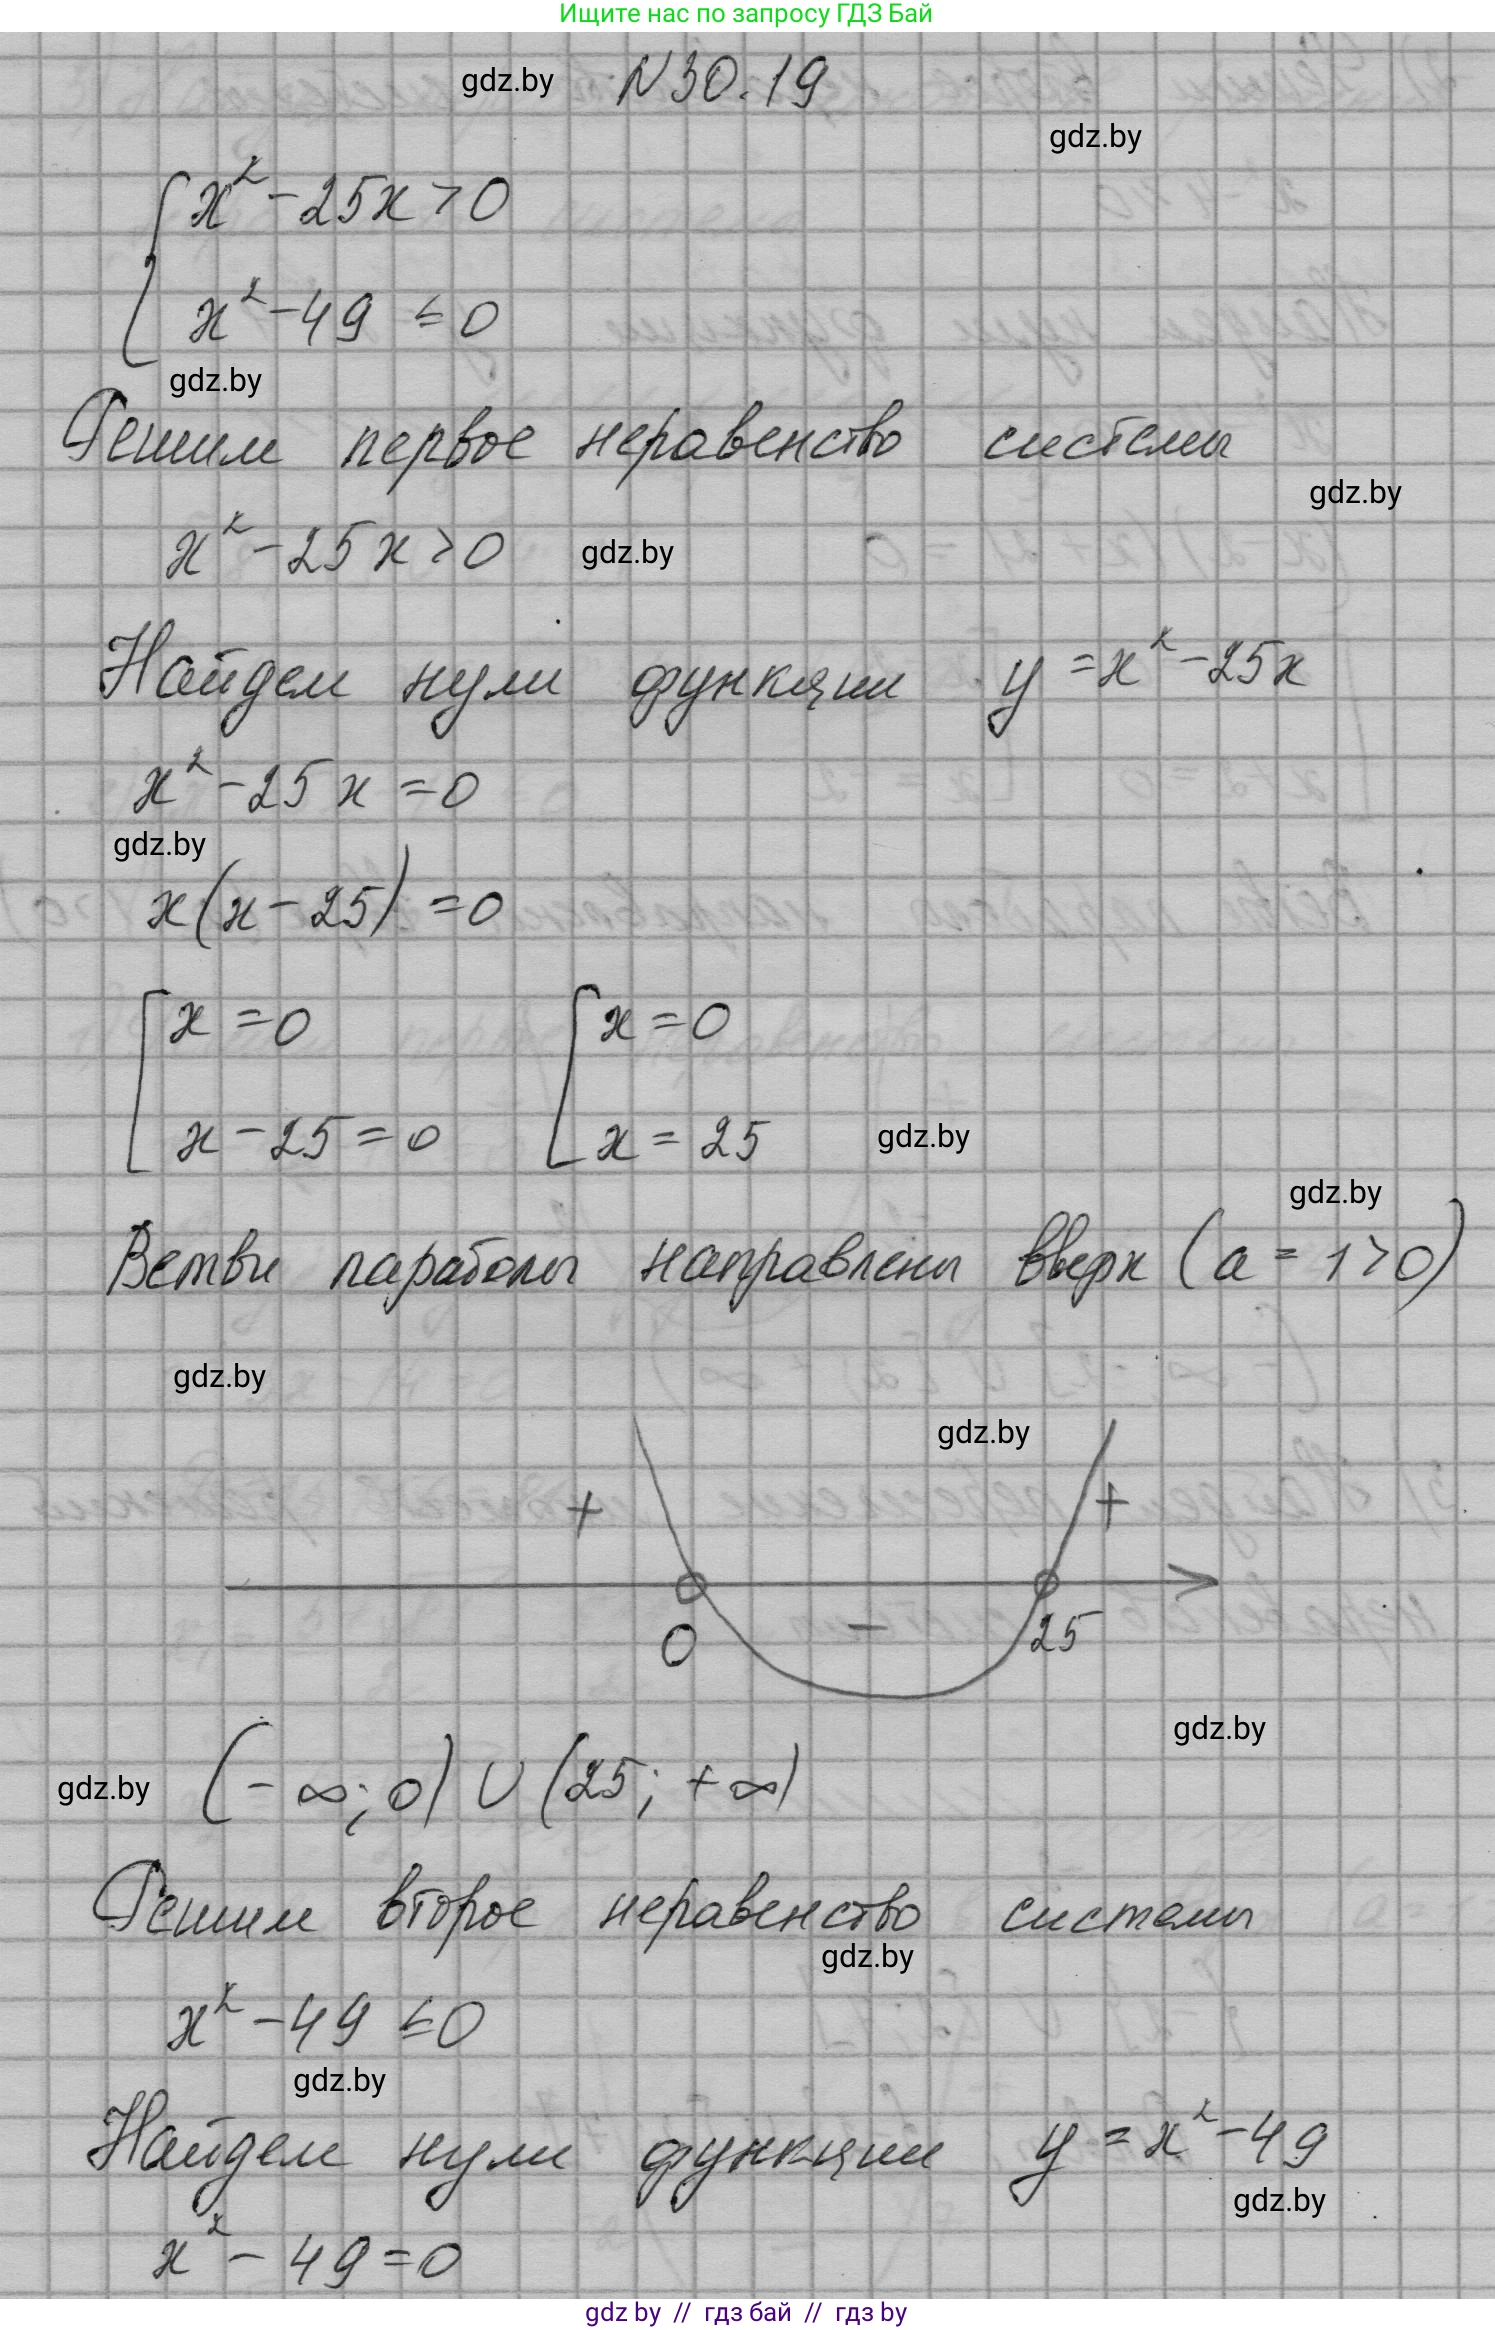 Ищите нас по запросу ГДЗ Бай
gdz.by N 30.19
gdz.by
x² - 25x > 0
x² - 49 ≤ 0
gdz.by
Решим первое неравенство системы
gdz.by
x² - 25x > 0 gdz.by
Найдем нули функции y = x² - 25x
x² - 25x = 0
gdz.by
x(x - 25) = 0
x = 0 x = 0
x - 25 = 0 x = 25 gdz.by
gdz.by
Ветви параболы направлены вверх (a = 1 > 0)
gdz.by
gdz.by
+ +
0 - 25
gdz.by
gdz.by (-∞; 0) ∪ (25; +∞)
Решим второе неравенство системы
gdz.by
x² - 49 ≤ 0
gdz.by
Найдем нули функции y = x² - 49
gdz.by
x² - 49 = 0
gdz by // гдз бай // gdz by